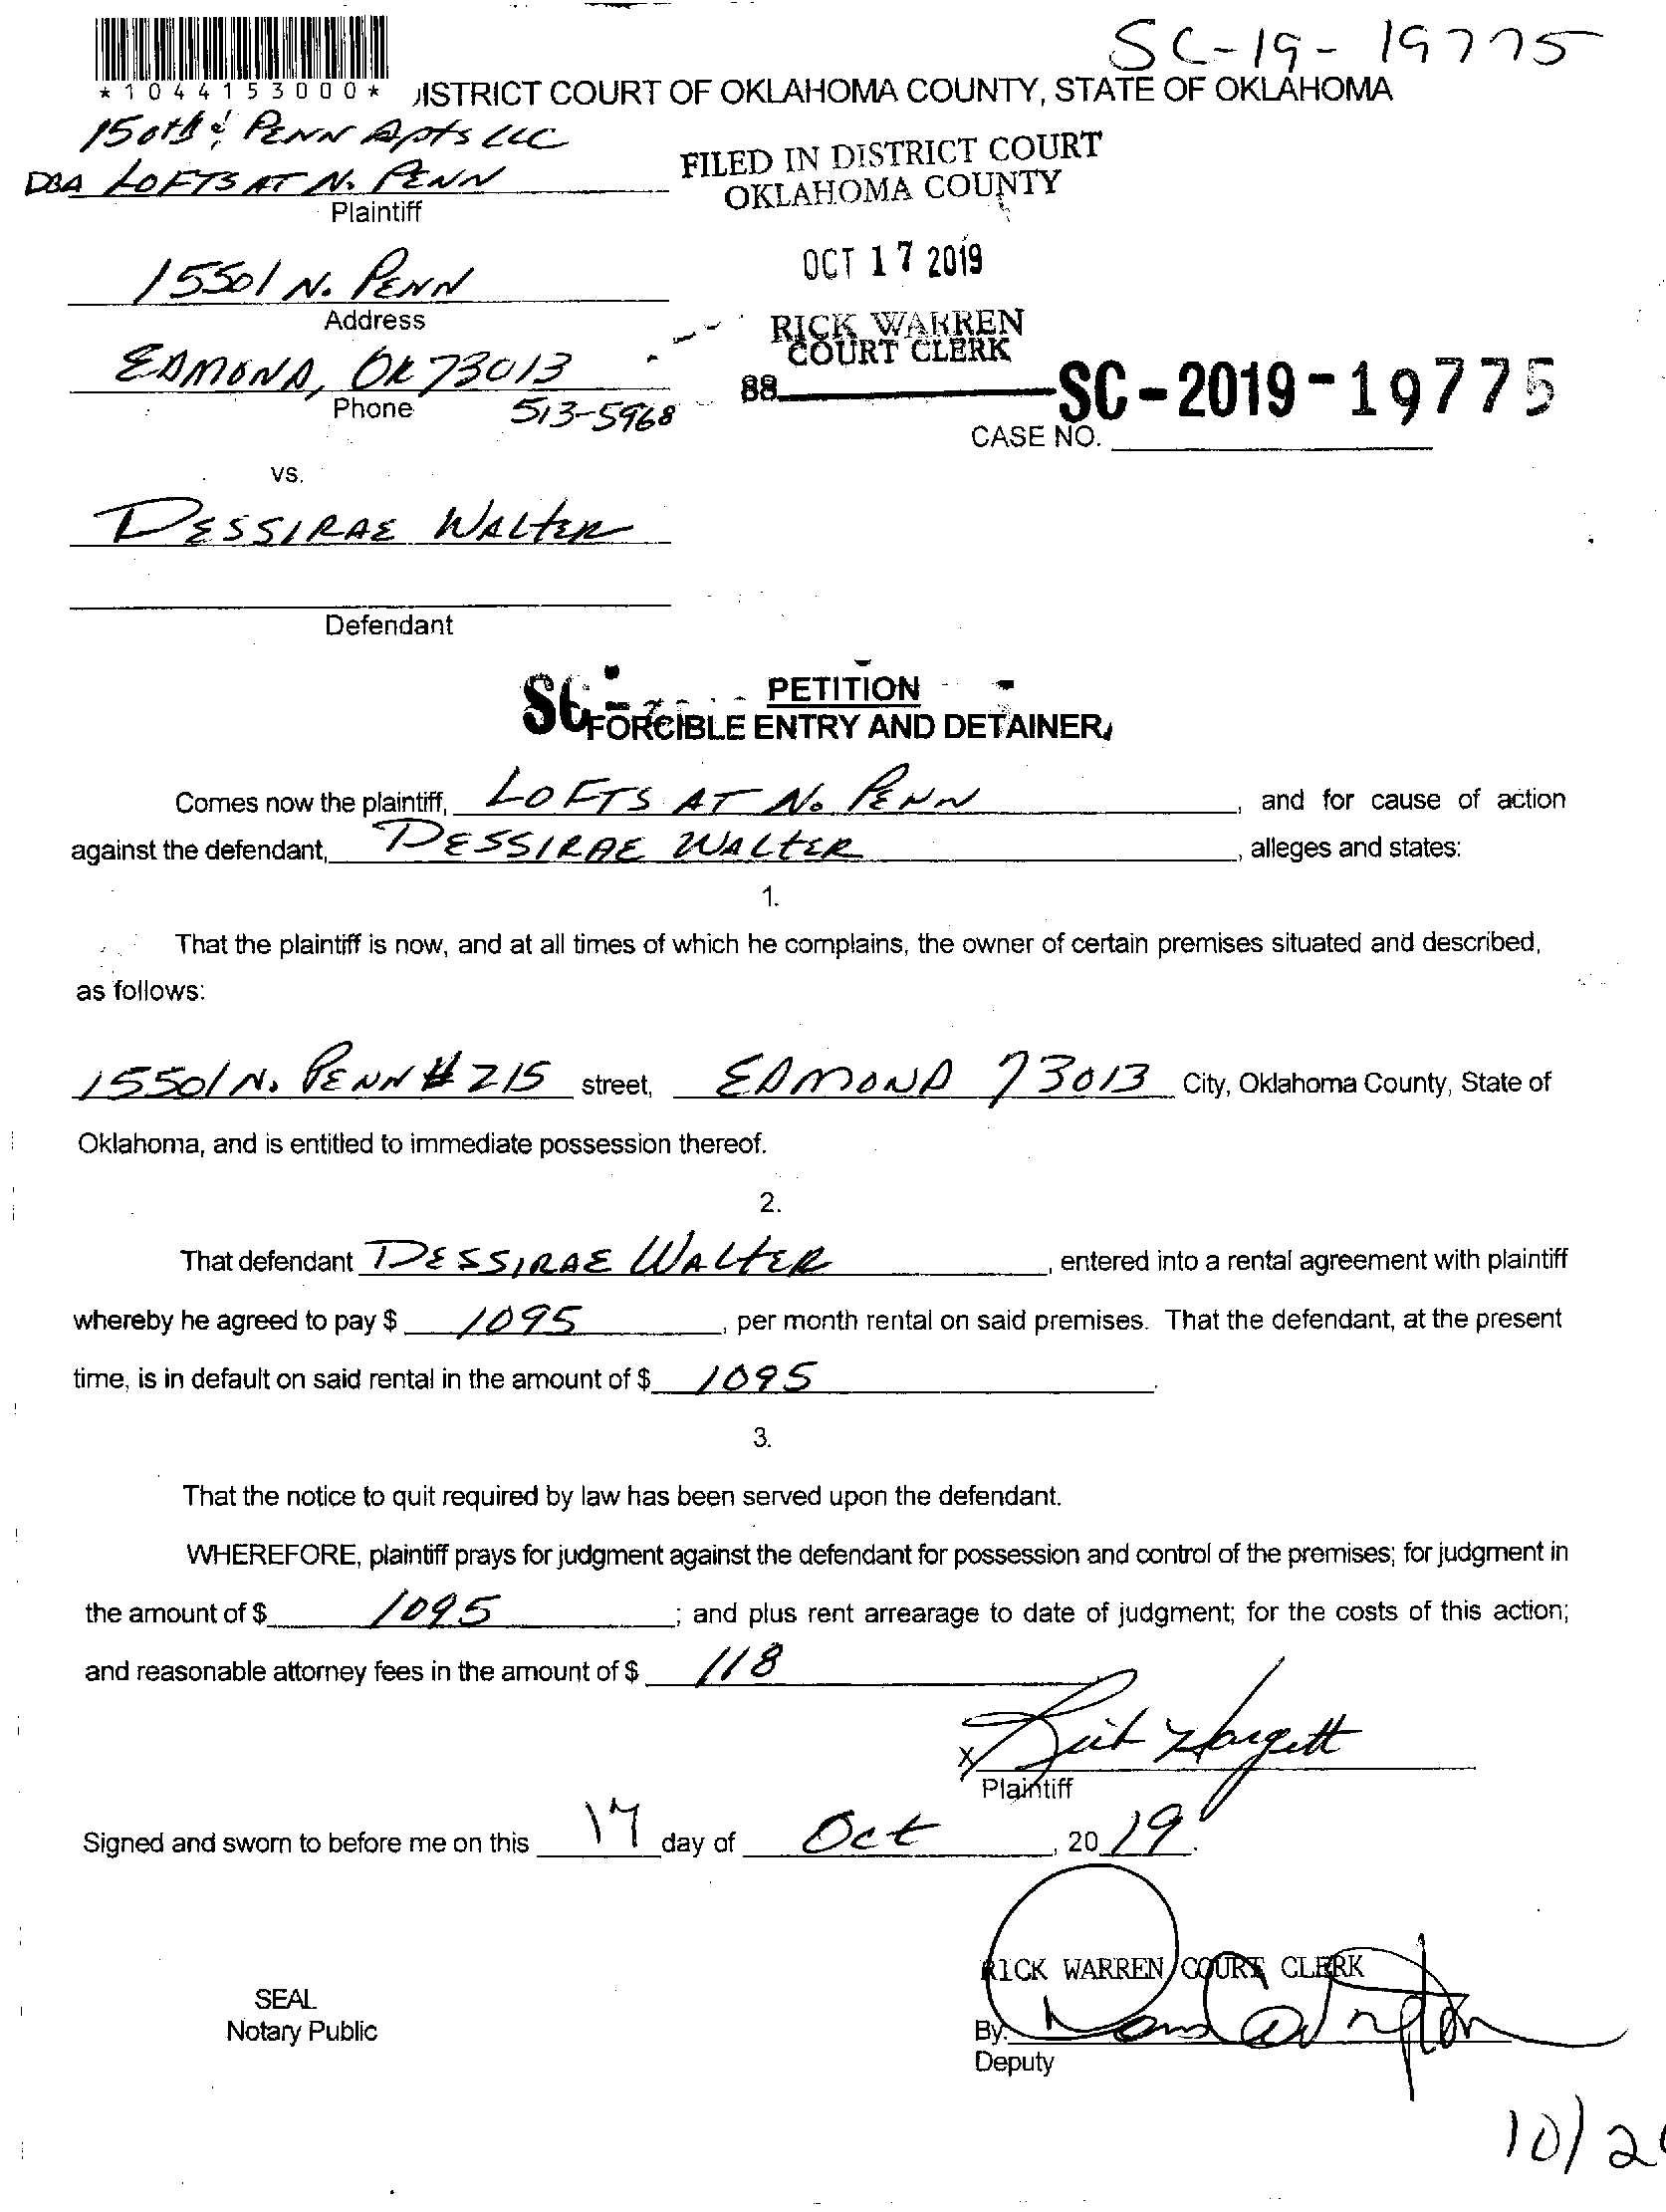 SC-19-19775
*1044153000*
DISTRICT COURT OF OKLAHOMA COUNTY, STATE OF OKLAHOMA
150th & PENN Apts LLC
DBA LOFTS AT N. PENN
Plaintiff
FILED IN DISTRICT COURT
OKLAHOMA COUNTY
OCT 17 2019
RICK WARREN
COURT CLERK
88
15501 N. PENN
Address
EDMOND, OK 73013
Phone 513-5968
SC-2019-19775
CASE NO.
vs.
DESSIRAE WALTER
Defendant
SC-
PETITION
FORCIBLE ENTRY AND DETAINER
Comes now the plaintiff, LOFTS AT N. PENN, and for cause of action
against the defendant, DESSIRAE WALTER, alleges and states:
1.
That the plaintiff is now, and at all times of which he complains, the owner of certain premises situated and described,
as follows:
15501 N. PENN # 215 street, EDMOND 73013 City, Oklahoma County, State of
Oklahoma, and is entitled to immediate possession thereof.
2.
That defendant DESSIRAE WALTER, entered into a rental agreement with plaintiff
whereby he agreed to pay $ 1095, per month rental on said premises. That the defendant, at the present
time, is in default on said rental in the amount of $ 1095.
3.
That the notice to quit required by law has been served upon the defendant.
WHEREFORE, plaintiff prays for judgment against the defendant for possession and control of the premises; for judgment in
the amount of $ 1095; and plus rent arrearage to date of judgment; for the costs of this action;
and reasonable attorney fees in the amount of $ 118
X
Hargett
Plaintiff
Signed and sworn to before me on this 17 day of Oct, 20 19.
RICK WARREN COURT CLERK
SEAL
Notary Public
By:
Deputy
10/2